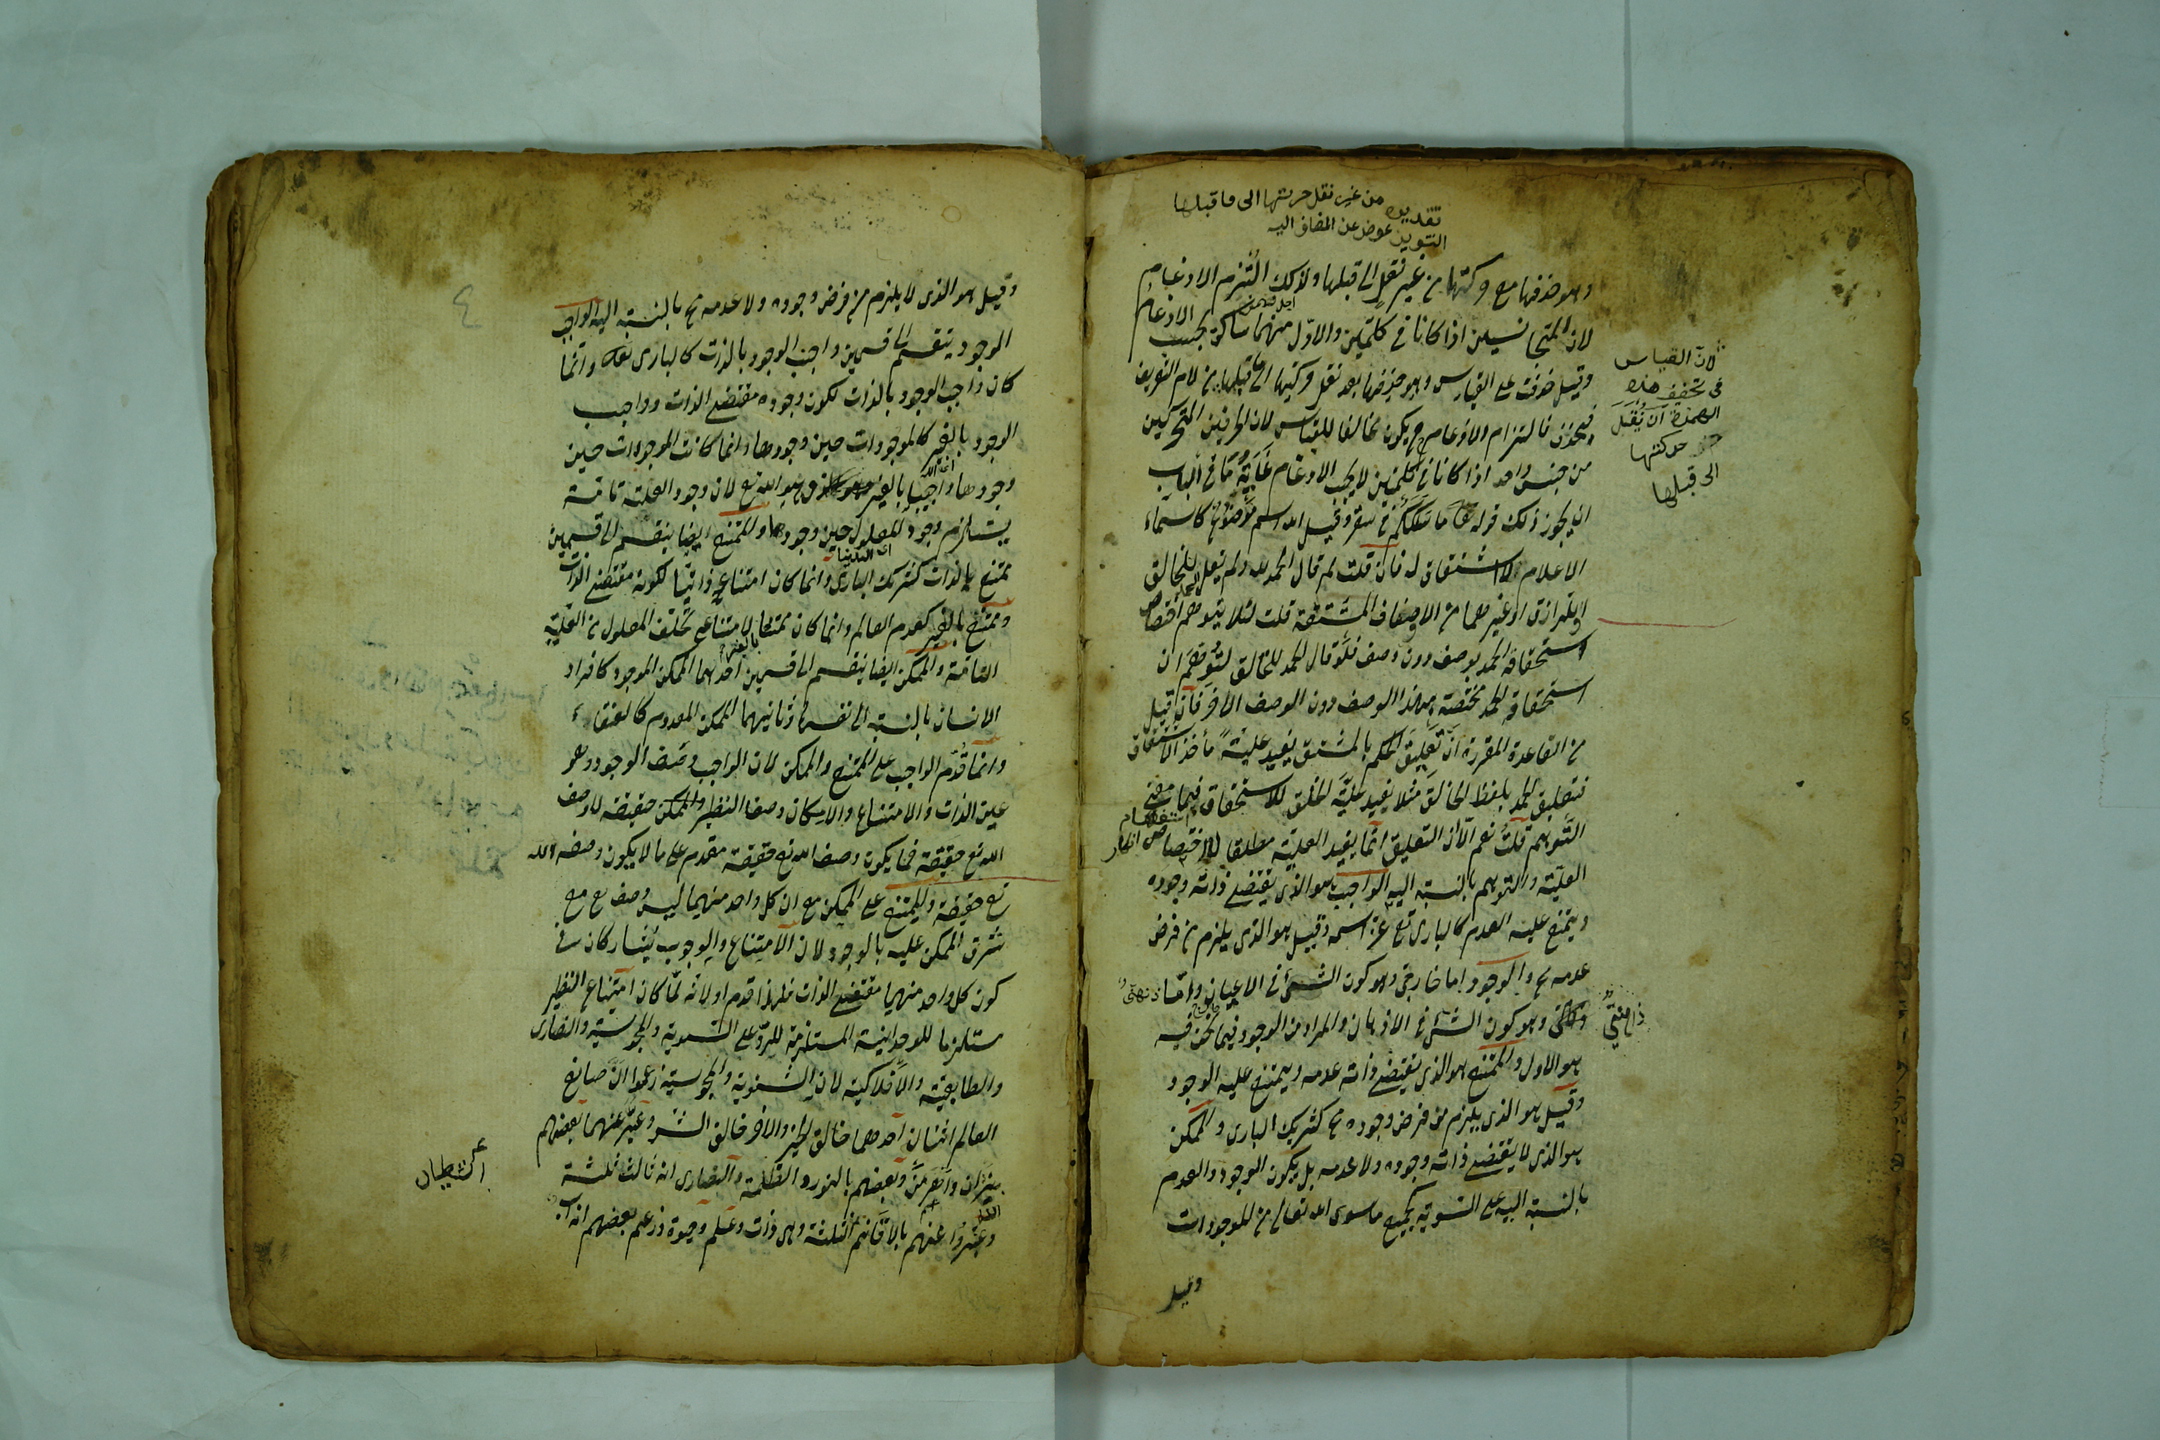 تقديره من غير نقل حركتها الى ما قبلها
التنوين عوض عن المضاف اليه
وهو حذفها مع حركتها من غير نقل الى قبلها ولذلك التزم الادغام
لان المتجانسين اذا كانا في كلمتين والاول منهما ساكن يجب الادغام
وقيل حذفت على القياس وهو حذفها بعد نقل حركتها الى ما قبلها من لام التعريف
فالتزام الادغام ح يكون مخالفا للقياس لان الحرفين المتحركين
من جنس واحد اذا كانا في كلمتين لا يجب الادغام غاية ما في الباب
ان يجوز ذلك قوله تعالى ما سلككم في سقر وقيل الله اسم موضوع كاسماء
الاعلام لا اشتقاق له فان قلت لم قال الحمد لله ولم يقل للخالق
او للرازق او غيرهما من الاوصاف المشتقة قلت لئلا يتوهم اختصاص
استحقاقه الحمد بوصف دون وصف فلو قال الحمد للخالق لتوهم ان
استحقاقه الحمد مختصة بهذا الوصف دون الوصف الاخر فان قيل
من القاعدة المقررة ان تعليق الحكم بالمشتق يفيد علية مأخذ الاشتقاق
فتعليق الحمد بلفظ الخالق مثلا يفيد علية الخلق للاستحقاق فيما معنى
التوهم قلت نعم الا ان التعليق انما يفيد العلية مطلقا لا اختصاص
العلية والتوهم بالنسبة اليه الواجب هو الذي يقتضي ذاته وجوده
ويمتنع عليه العدم كالباري تع عز اسمه وقيل هو الذي يلزم من فرض
عدمه مح والوجود اما خارجي وهو كون الشئ في الاعيان واما ذهني
وهو كون الشئ في الاذهان والمراد من الوجود فيما نحن فيه
هو الاول والممتنع هو الذي يقتضي ذاته عدمه ويمتنع عليه الوجود
وقيل هو الذي يلزم من فرض وجوده مح كشريك الباري والممكن
هو الذي لا يقتضي ذاته وجوده ولا عدمه بل يكون الوجود والعدم
بالنسبة اليه على السوية كجميع ما سوى الله تعالى من الموجودات
وقيل
لان القياس
في تخفيف هذه
الهمزة ان ينقل
حركتها
الى قبلها
وقيل هو الذي لا يلزم من فرض وجوده ولا عدمه مح بالنسبة اليه الواجب
الوجود ينقسم الى قسمين واجب الوجود بالذات كالباري تعالى وانما
كان واجب الوجود بالذات لكون وجوده مقتضى الذات وواجب
الوجود بالغير كالموجودات حين وجودها وانما كانت الموجودات حين
وجودها واجبا بالغير وهو الله تع لان وجود العلة تامة
يستلزم وجود المعلول حين وجودها والممتنع ايضا ينقسم الى قسمين
ممتنع بالذات كشريك الباري وانما كان امتناعه ذاتيا لكونه مقتضى الذات
وممتنع بالغير كعدم العالم وانما كان ممتنعا لامتناع تخلف المعلول من العلية
التامة والممكن ايضا ينقسم الى قسمين احدهما الممكن الموجود كافراد
الانسان بالنسبة الى نفسها وثانيهما الممكن المعدوم كالعنقاء
وانما قدم الواجب على الممتنع والممكن لان الواجب وصف الوجود وهو
عين الذات والامتناع والامكان وصفا النظير والممكن حقيقة لا وصف
الله تع حقيقة فما يكون وصف الله تع حقيقة مقدم على ما لا يكون وصفه الله
تع حقيقة والممتنع على الممكن مع ان كل واحد منهما ليس وصف تع مع
شرف الممكن عليه بالوجود لان الامتناع والوجوب يتشاركان في
كون كل واحد منهما مقتضى الذات فلهذا قدم اولا نه لما كان امتناع النظير
مستلزما للوحدانية المستلزمة للرد على الثنوية والمجوسية والنصارى
والطبايعية والافلاكية لان الثنوية والمجوسية زعموا ان صانع
العالم اثنان احدهما خالق الخير والاخر خالق الشر وعبر عنهما بعضهم
بيزدان واهرمن وبعضهم بالنور والظلمة والنصارى انه ثالث ثلثة
وعبروا عنهم بالاقانيم الثلثة وهي ذات وعلم وحيوة وزعم بعضهم انه اب
اى الشيطان